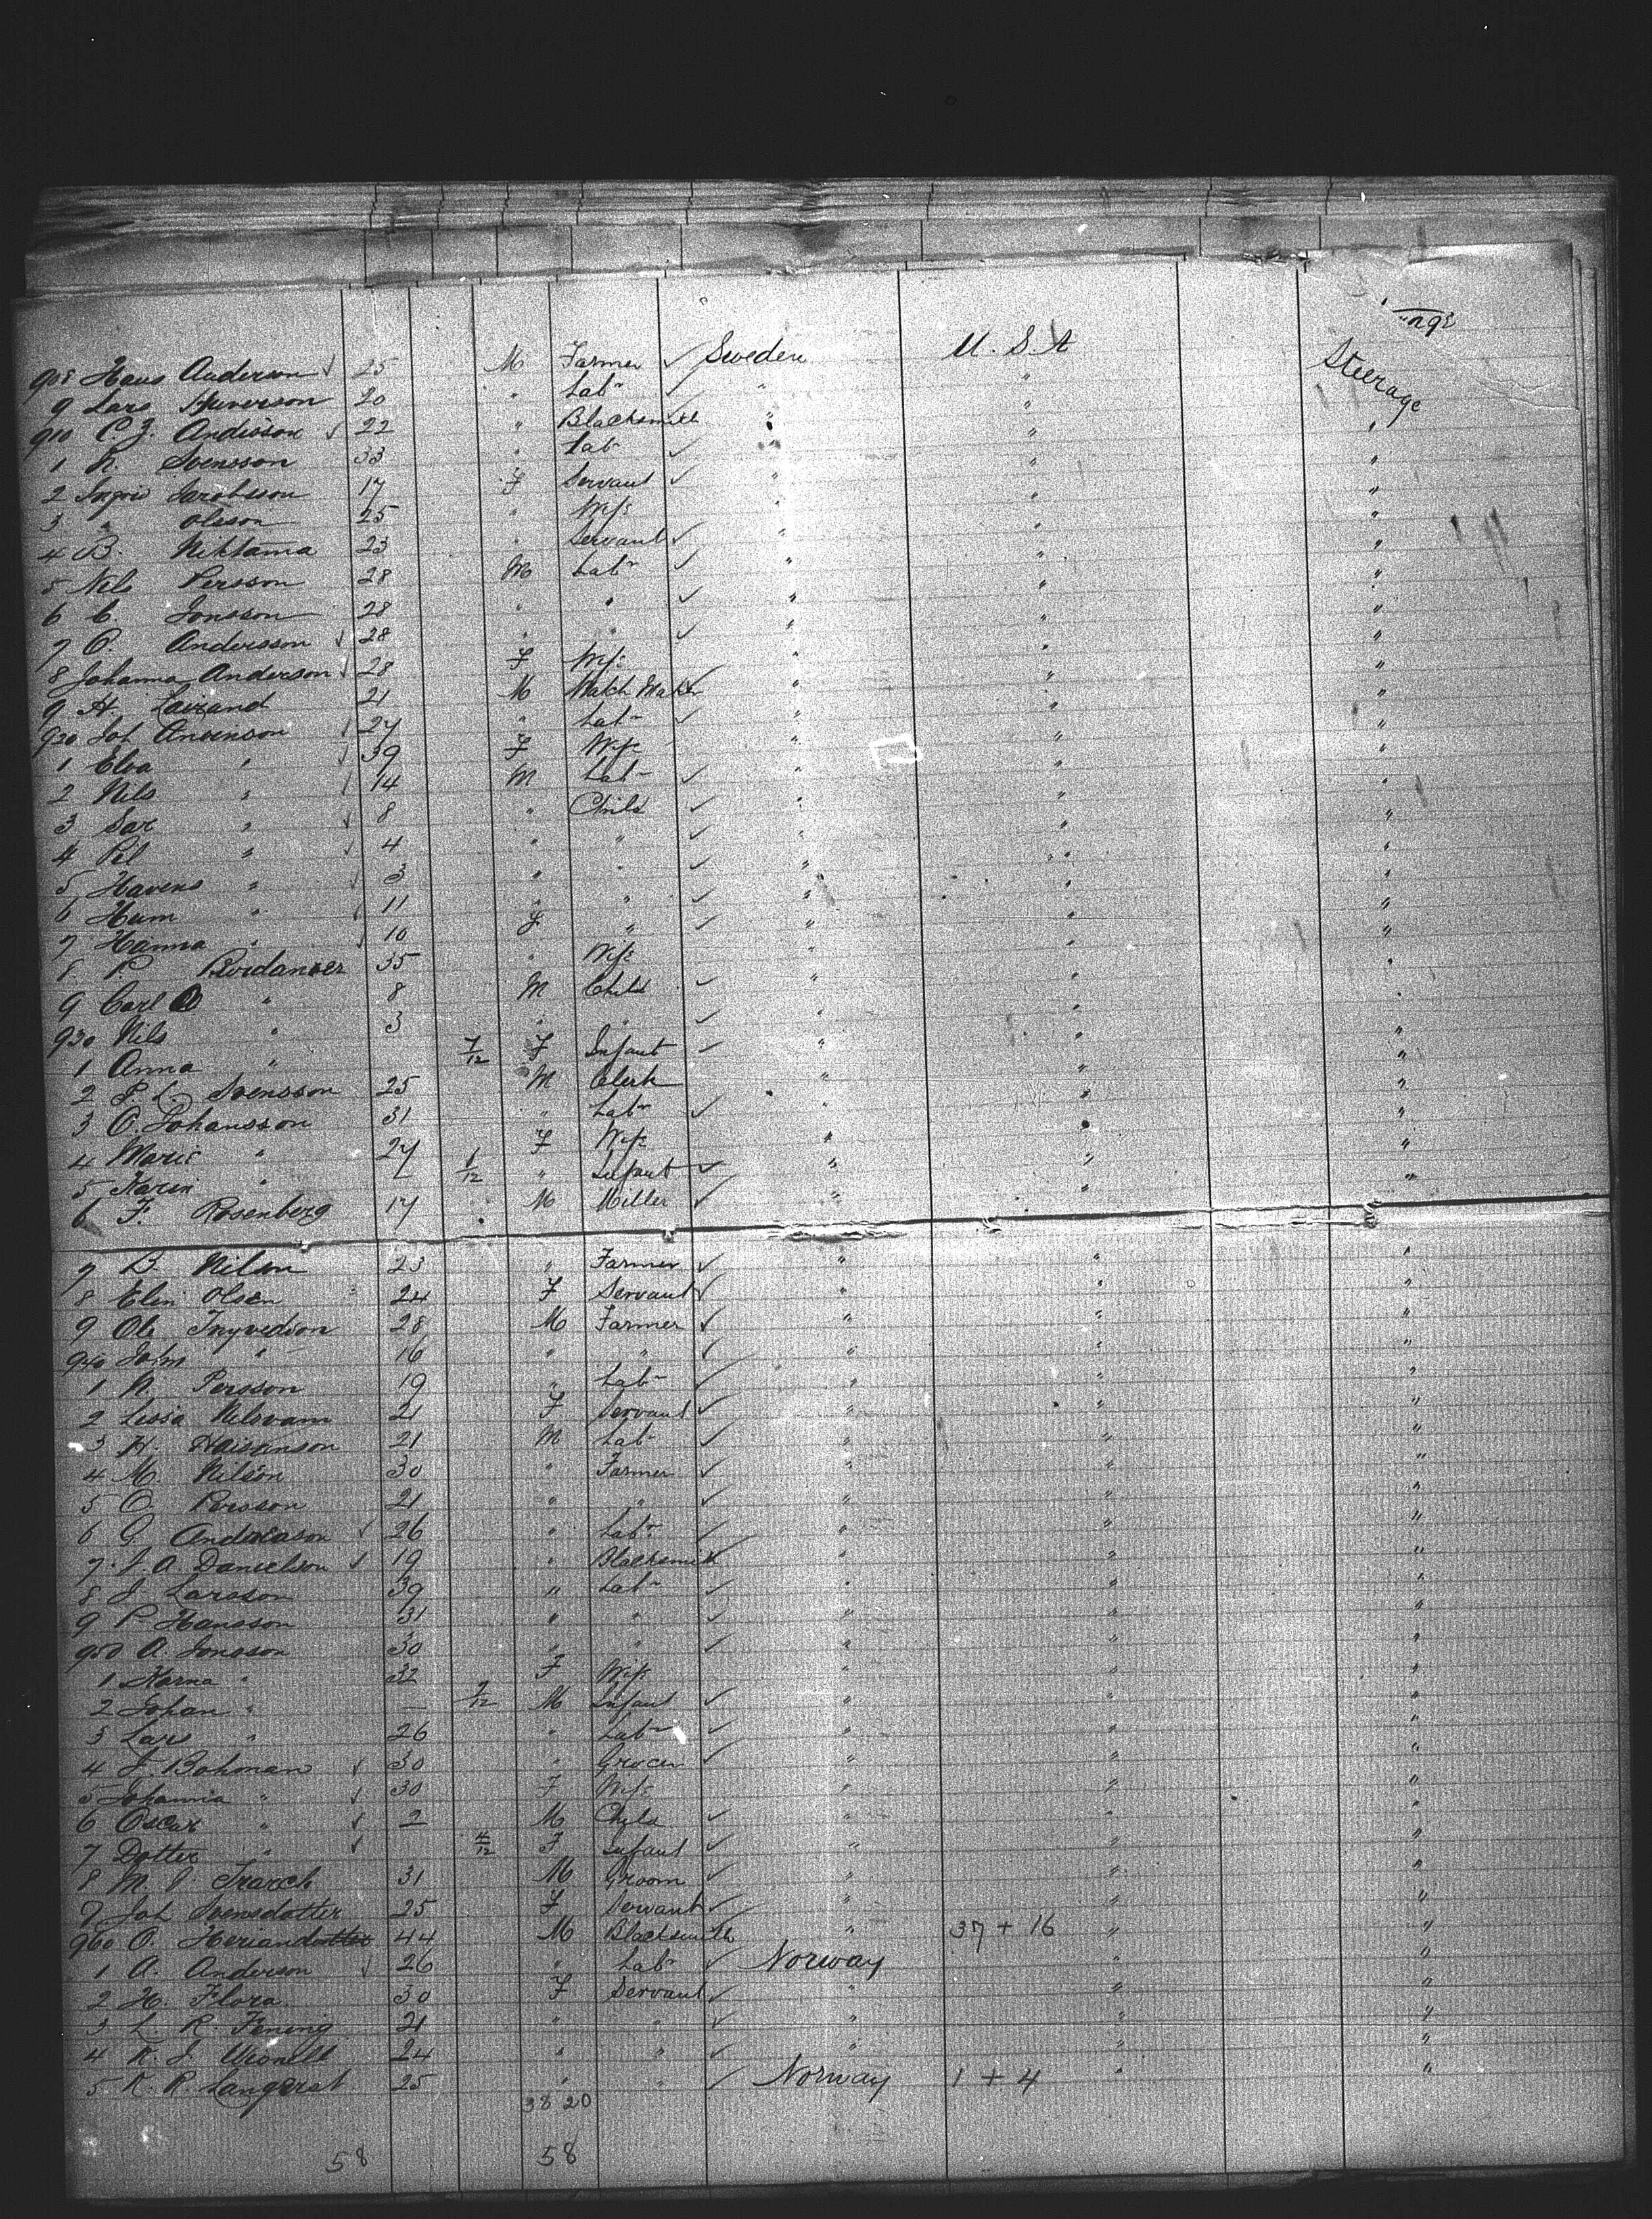 908 Hans Anderson 25 M Farmer Sweden U.S.A Steerage
9 Lars 20 " Labr " " "
910 C. J. Andisson 22 " Blacksmith " " "
1 N. Svensson 33 " Labr " " "
2 Ingrid Jacobsson 17 F Servant " " "
3 " Olsson 25 " Wife " " "
4 B. Niktama 23 " Servant " " "
5 Nils Persson 28 M Labr " " "
6 C. Jonsson 28 " " " " "
7 O. Andersson 28 " " " " "
8 Johanna Anderson 28 F Wife " " "
9 H. 21 M Watch Maker " " "
920 Joh 27 " Labr " " "
1 Elva " 39 F Wife " " "
2 Nils " 14 M Labr " " "
3 " 8 " Child " " "
4 Pel " 4 " " " " "
5 Havens " 3 " " " " "
6 Ham " 11 " " " " "
7 Hanna " 10 F " " " "
8 P. 35 " Wife " " "
9 Carl " 8 M Child " " "
930 Nils " 3 " " " " "
1 Anna " 7/12 F Infant " " "
2 P. L. Svensson 25 M Clerk " " "
3 O. Johansson 31 " Labr " " "
4 Marie " 27 F Wife " " "
5 Karin " 1/12 " Infant " " "
6 F. Rosenberg 17 M Miller " " "
7 B. Nilson 23 " Farmer " " "
8 Elin Olsen 24 F Servant " " "
9 Ole 28 M Farmer " " "
940 John " 16 " " " " "
1 N. Persson 19 " Labr " " "
2 Lissa Nilsvam 21 F Servant " " "
3 H. 21 M Labr " " "
4 M. Nilson 30 " Farmer " " "
5 O. Persson 21 " " " " "
6 G. Andreason 26 " Labr " " "
7 J. A. Danielson 19 " Blacksmith " " "
8 J. Larsson 39 " Labr " " "
9 P. Hansson 31 " " " " "
950 A. Jonsson 30 " " " " "
1 Karna " 32 F Wife " " "
2 Johan " — 7/12 M Infant " " "
3 Lars " 26 " Labr " " "
4 J. Bohman 30 " Grocer " " "
5 Johanna " 30 F Wife " " "
6 Oscar " 2 M Child " " "
7 Dotter " 4/12 F Infant " " "
8 M. J. 31 M Groom " " "
9 Joh Svensdotter 25 F Servant " " "
960 O. 44 M Blacksmith " 37 + 16 " "
1 A. Anderson 26 " Labr Norway " "
2 H. Flora 30 F Servant " " "
3 L. R. 21 " " " " "
4 K. J. 24 " " " " "
5 K. R. Langerst 25 " " Norway 1 + 4 " "
38 20
58 58